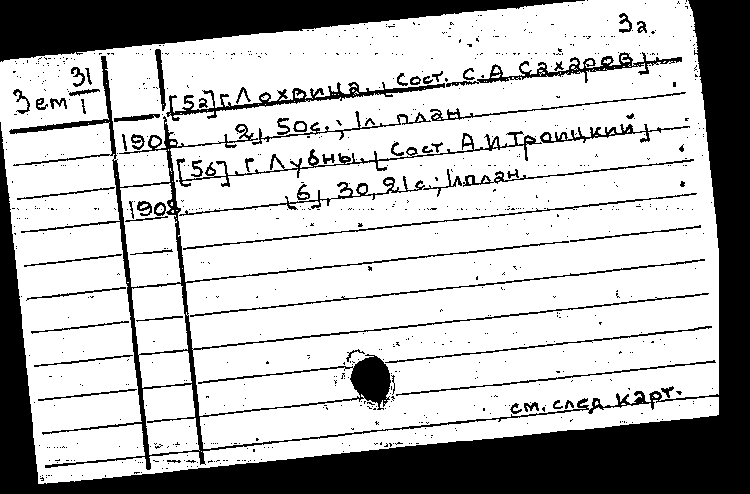 3а.
Зем 31/1
[5а]. г. Лохвица. [Сост. С.А Сахаров].
1906. [2], 50с.; 1л. план.
[5б]. г. Лубны. [Сост. А.И. Троицкий].
1908. [6], 30, 21с.; 1л план.
см. след. карт.